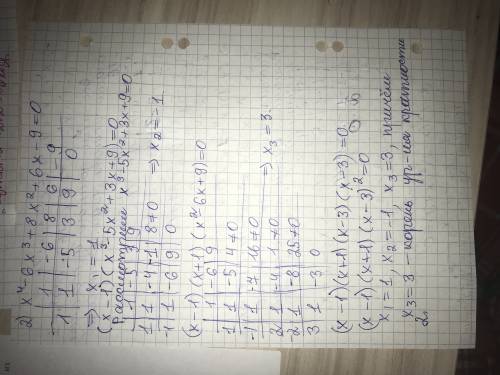 2) x⁴-6x³+8x²+6x-9=0
| 1 | -6 | 8 | 6 | -9
1 | 1 | -5 | 3 | 9 | 0
=> x₁=1
(x-1)(x³-5x²+3x+9)=0
Рассмотрим x³-5x²+3x+9=0
| 1 | -5 | 3 | 9
1 | 1 | -4 | -1 | 8≠0
-1 | 1 | -6 | 9 | 0 => x₂=-1
(x-1)(x+1)(x²-6x+9)=0
| 1 | -6 | 9
1 | 1 | -5 | 4≠0
-1 | 1 | -7 | 16≠0
2 | 1 | -4 | 1≠0
-2 | 1 | -8 | 25≠0
3 | 1 | -3 | 0 => x₃=3
(x-1)(x+1)(x-3)(x-3)=0
(x-1)(x+1)(x-3)²=0
x₁=1, x₂=-1, x₃=3, причём
x₃=3 - корень ур-ия кратности
2.